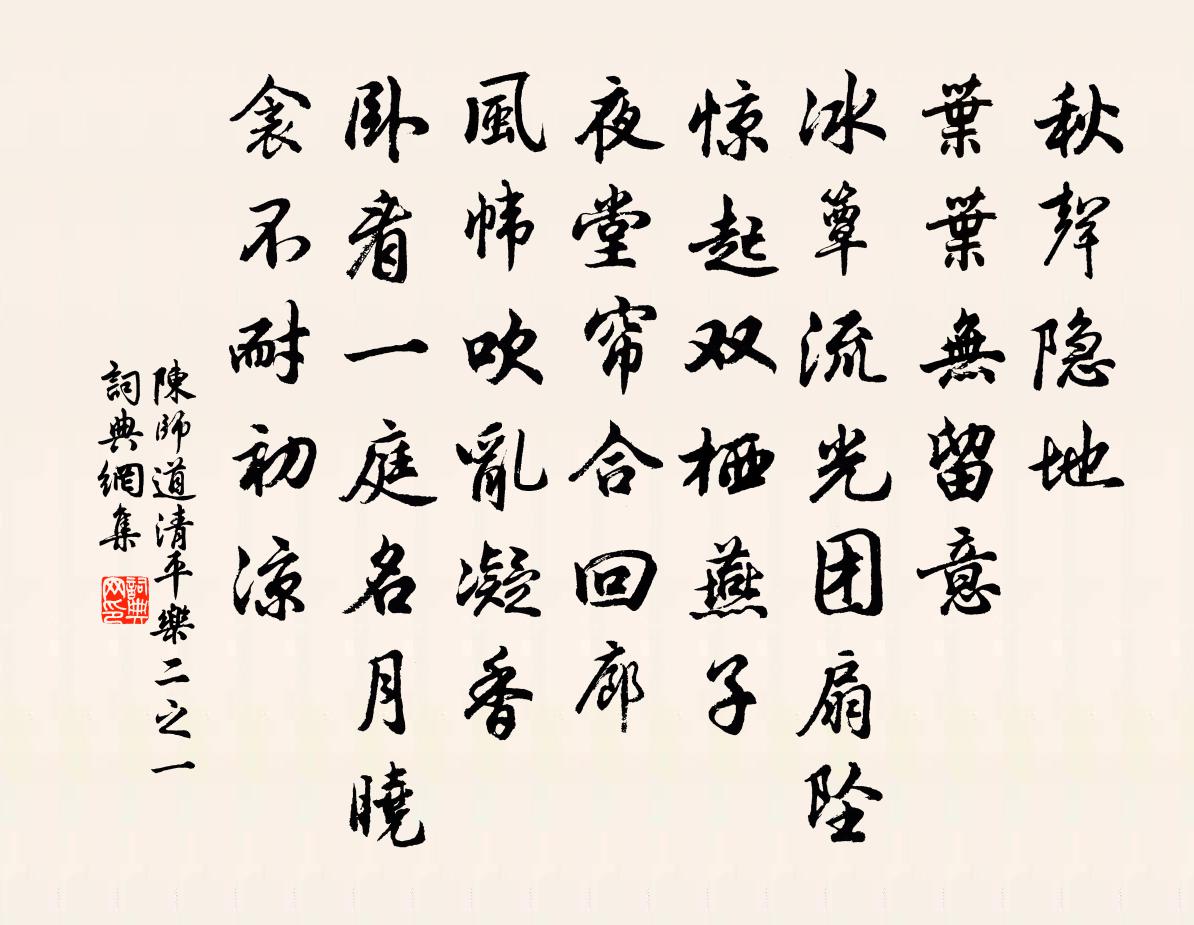 秋聲隐地
葉葉無留意
冰簟流光团扇坠
惊起双栖燕子
夜堂帘合回廊
風帏吹亂凝香
卧看一庭名月曉
衾不耐初涼
陳師道清平樂二之一
詞典網集
詞典网印